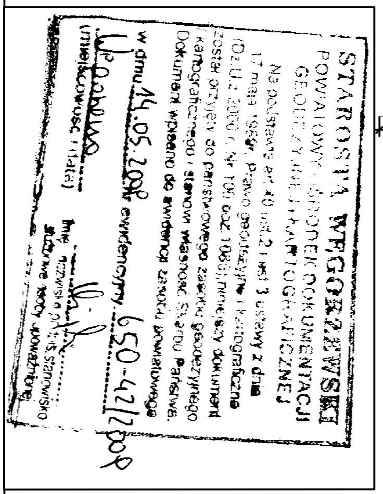 STAROSTA WĘGORZEWSKI
POWIATOWY OŚRODEK DOKUMENTACJI
GEODEZYJNEJ I KARTOGRAFICZNEJ
Na podstawie art. 40 ust. 2 i ust 3 ustawy z dnia
17 maja 1989r. Prawo geodezyjne i kartograficzne
(Dz.U.z 2000 r. Nr 100 poz. 1086), niniejszy dokument
został przyjęty do państwowego zasobu geodezyjnego
i kartograficznego i stanowi własność Skarbu Państwa.
Dokument wpisano do ewidencji zasobu powiatowego
w dniu 14.05.2009 Nr ewidencyjny 650-42/2009
Węgorzewo
(miejscowość i data) Imię nazwisko podpis stanowisko
służbowe osoby upoważnionej